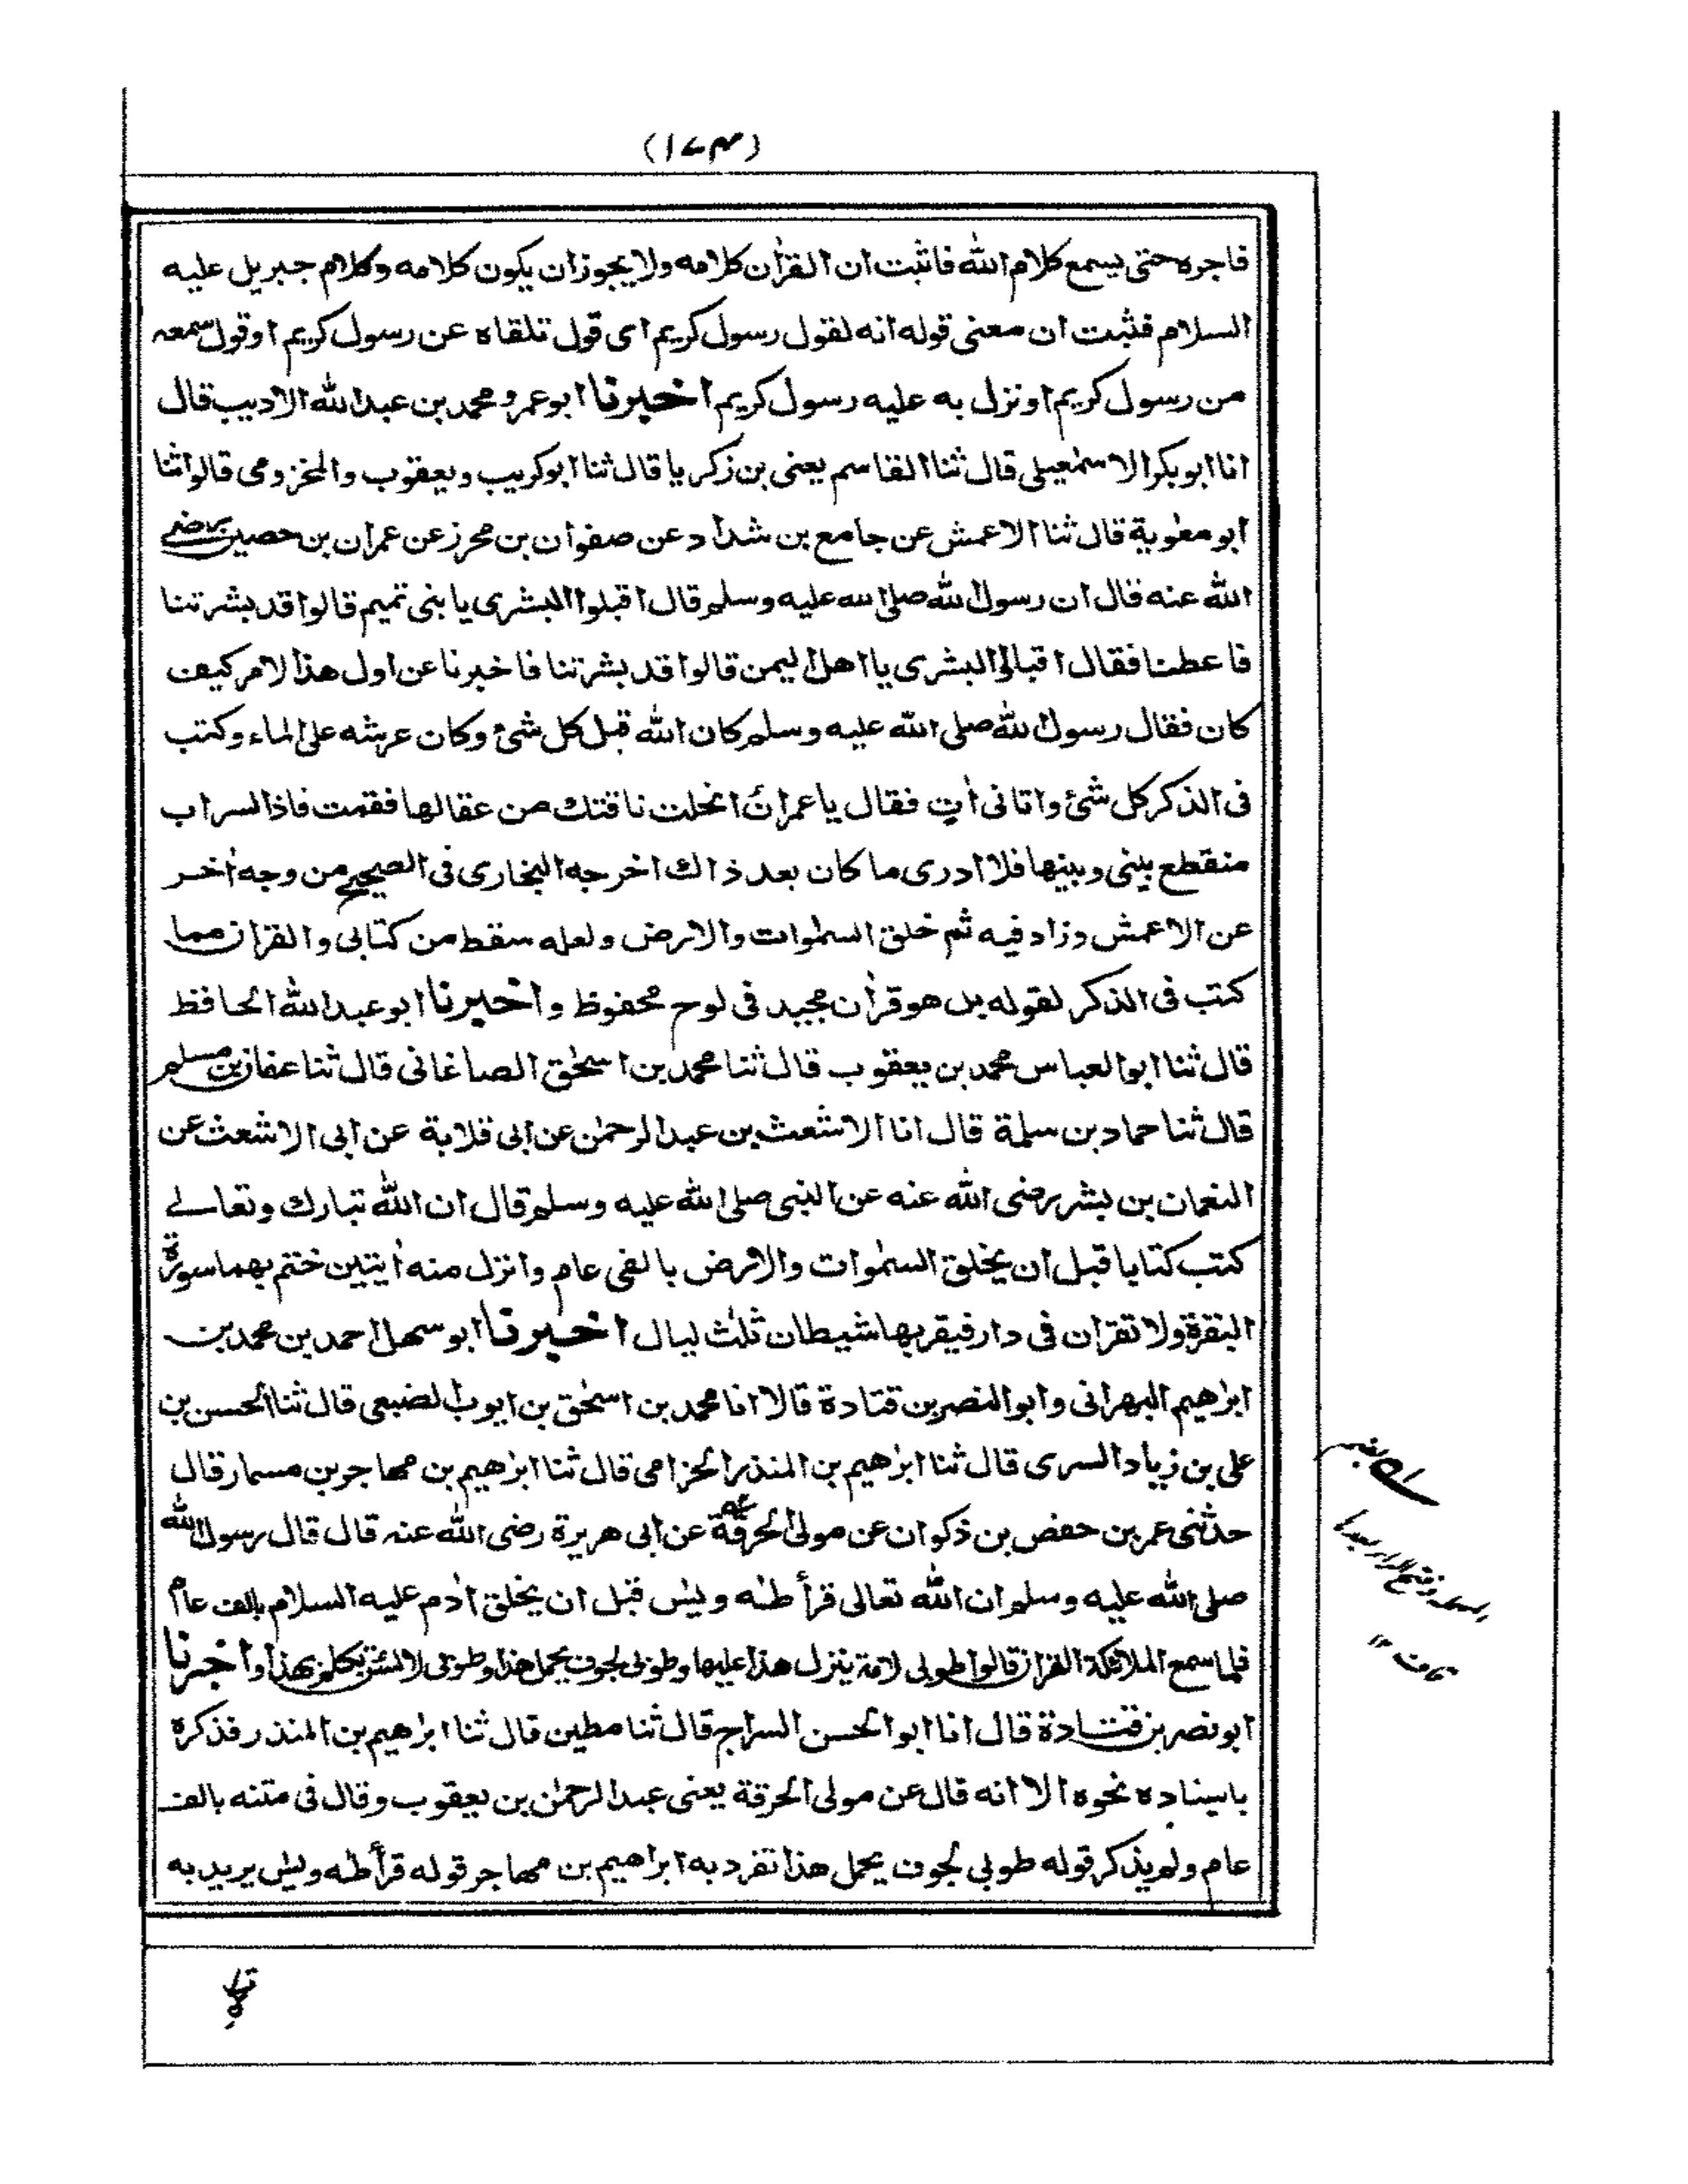 (١٧٤)
فاجره حتى يسمع كلام الله فاثبت ان القرآن كلامه ولا يجوز ان يكون كلامه وكلام جبريل عليه
السلام فثبت ان معنى قوله انه لقول رسول كريم اى قول تلقاه عن رسول كريم او قول سمعه
من رسول كريم او نزل به عليه رسول كريم اخبرنا ابو عمرو محمد بن عبد الله الاديب قال
انا ابو بكر الاسمٰعيلى قال ثنا القاسم يعنى بن زكريا قال ثنا ابو كريب ويعقوب والمخزومى قالوا ثنا
ابو معٰوية قال ثنا الاعمش عن جامع بن شداد عن صفوان بن محرز عن عمران بن حصين رضى
الله عنه قال ان رسول الله صلى الله عليه وسلم قال اقبلوا البشرى يا بنى تميم قالوا قد بشرتنا
فاعطنا فقال اقبلوا البشرى يا اهل اليمن قالوا قد بشرتنا فاخبرنا عن اول هذا الامر كيف
كان فقال رسول الله صلى الله عليه وسلم كان الله قبل كل شئ وكان عرشه على الماء وكتب
فى الذكر كل شئ واتانى اٰت فقال يا عمران انحلت ناقتك من عقالها فقمت فاذا السراب
منقطع بينى وبينها فلا ادرى ما كان بعد ذالك اخرجه البخارى فى الصحيح من وجه اٰخر
عن الاعمش وزاد فيه ثم خلق السمٰوات والارض ولعله سقط من كتابى والقرآن مما
كتب فى الذكر لقوله بل هو قرآن مجيد فى لوح محفوظ واخبرنا ابو عبد الله الحافظ
قال ثنا ابو العباس محمد بن يعقوب قال ثنا محمد بن اسحٰق الصاغانى قال ثنا عفان بن مسلم
قال ثنا حماد بن سلمة قال انا الاشعث بن عبد الرحمٰن عن ابى قلابة عن ابى الاشعث عن
النعمان بن بشر رضى الله عنه عن النبى صلى الله عليه وسلم قال ان الله تبارك وتعالى
كتب كتابا قبل ان يخلق السمٰوات والارض بالفى عام وانزل منه اٰيتين ختم بهما سورة
البقرة ولا تقران فى دار فيقر بها شيطان ثلٰث ليال اخبرنا ابو سهل احمد بن محمد بن
ابرٰهيم المهرانى وابو النصر بن قتادة قالا انا محمد بن اسحٰق بن ايوب الضبعى قال ثنا الحسن بن
على بن زياد السرى قال ثنا ابرٰهيم بن المنذر الحزامى قال ثنا ابرٰهيم بن مهاجر بن مسمار قال
حدثنى عمر بن حفص بن ذكوان عن مولى الحرقة عن ابى هريرة رضى الله عنه قال قال رسول الله
صلى الله عليه وسلم ان الله تعالى قرأ طٰه ويٰس قبل ان يخلق اٰدم عليه السلام بالف عام
فلما سمع الملائكة القرآن قالوا طوبى لامة ينزل هذا عليها وطوبى لجوف يحمل هذا وطوبى لالسن تكلم بهذا واخبرنا
ابو نصر بن قتادة قال انا ابو الحسن السراج قال ثنا مطين قال ثنا ابراهيم بن المنذر فذكره
باسناده نحوه الا انه قال عن مولى الحرقة يعنى عبد الرحمٰن بن يعقوب وقال فى متنه بالف
عام ولم يذكر قوله طوبى لجوف يحمل هذا تفرد به ابراهيم بن مهاجر قوله قرأ طٰه ويٰس يريد به